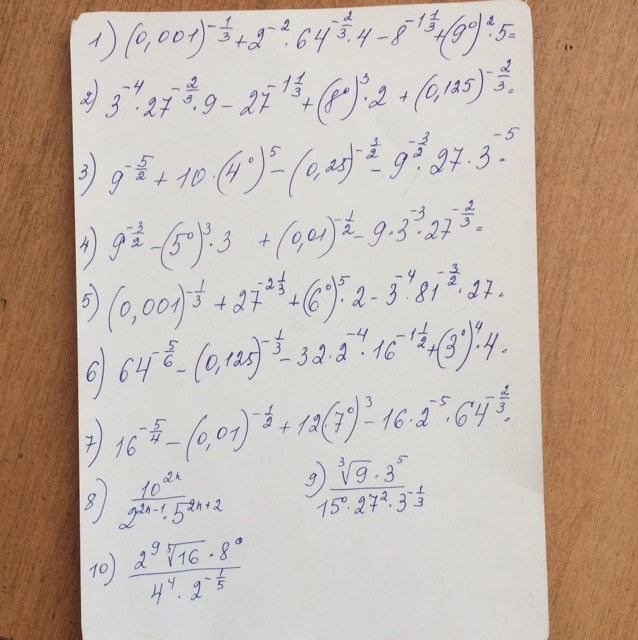 1) (0,001)^{-\frac{1}{3}} + 2^{-2} · 64^{-\frac{2}{3}} · 4 - 8^{-1\frac{1}{3}} + (9^0)^2 · 5 =
2) 3^{-4} · 27^{-\frac{2}{3}} · 9 - 27^{-1\frac{1}{3}} + (8^0)^3 · 2 + (0,125)^{-\frac{2}{3}} =
3) 9^{-\frac{5}{2}} + 10 · (4^0)^5 - (0,25)^{-\frac{3}{2}} - 9^{-\frac{3}{2}} · 27 · 3^{-5} =
4) 9^{-\frac{3}{2}} - (5^0)^3 · 3 + (0,01)^{-\frac{1}{2}} - 9 · 3^{-3} · 27^{-\frac{2}{3}} =
5) (0,001)^{-\frac{1}{3}} + 27^{-2\frac{1}{3}} + (6^0)^5 · 2 - 3^{-4} · 81^{-\frac{3}{2}} · 27 =
6) 64^{-\frac{5}{6}} - (0,125)^{-\frac{1}{3}} - 32 · 2^{-4} · 16^{-1\frac{1}{2}} + (3^0)^4 · 4 =
7) 16^{-\frac{5}{4}} - (0,01)^{-\frac{1}{2}} + 12 (7^0)^3 - 16 · 2^{-5} · 64^{-\frac{2}{3}} =
8) \frac{10^{2n}}{2^{2n-1} · 5^{2n+2}}
9) \frac{\sqrt[3]{9} · 3^5}{15^0 · 27^2 · 3^{-\frac{1}{3}}}
10) \frac{2^9 \sqrt[5]{16} · 8^0}{4^4 · 2^{-\frac{1}{5}}}